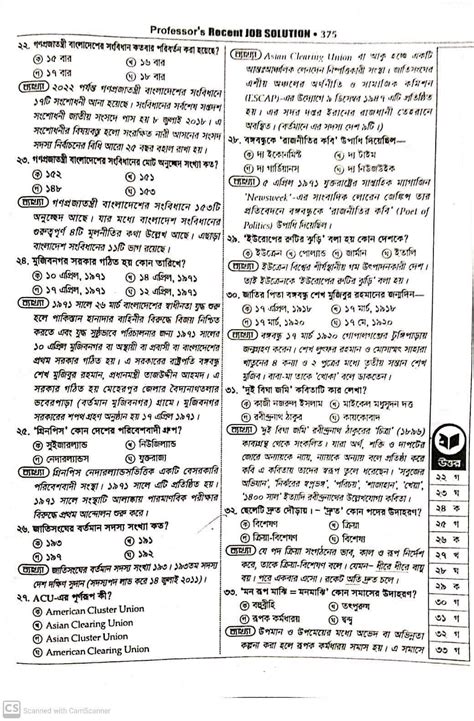 Professor's Recent JOB SOLUTION • 375
২২. গণপ্রজাতন্ত্রী বাংলাদেশের সংবিধান কতবার পরিবর্তন করা হয়েছে?
ক ১৫ বার খ ১৬ বার
গ ১৭ বার ঘ ১৮ বার
ব্যাখ্যা ২০২২ পর্যন্ত গণপ্রজাতন্ত্রী বাংলাদেশের সংবিধানে
১৭টি সংশোধনী আনা হয়েছে। সংবিধানের সর্বশেষ সপ্তদশ
সংশোধনী জাতীয় সংসদে পাস হয় ৮ জুলাই ২০১৮। এ
সংশোধনীর বিষয়বস্তু হলো সংরক্ষিত নারী আসনের সংসদ
সদস্য নির্বাচনের বিধি আরো ২৫ বছর বহাল রাখা হয়।
২৩. গণপ্রজাতন্ত্রী বাংলাদেশের সংবিধানের মোট অনুচ্ছেদ সংখ্যা কত?
ক ১৫২ খ ১৫১
গ ১৪৮ ঘ ১৫৩
ব্যাখ্যা গণপ্রজাতন্ত্রী বাংলাদেশের সংবিধানে ১৫৩টি
অনুচ্ছেদ আছে। যার মধ্যে বাংলাদেশ সংবিধানের
গুরুত্বপূর্ণ ৪টি মূলনীতির কথা উল্লেখ আছে। এছাড়া
বাংলাদেশ সংবিধানের ১১টি ভাগ রয়েছে।
২৪. মুজিবনগর সরকার গঠিত হয় কোন তারিখে?
ক ১০ এপ্রিল, ১৯৭১ খ ১৪ এপ্রিল, ১৯৭১
গ ১৭ এপ্রিল, ১৯৭১ ঘ ১২ এপ্রিল, ১৯৭১
ব্যাখ্যা ১৯৭১ সালে ২৬ মার্চ বাংলাদেশের স্বাধীনতা যুদ্ধ শুরু
হলে পাকিস্তান হানাদার বাহিনীর বিরুদ্ধে বিজয় নিশ্চিত
করতে এবং যুদ্ধ সুষ্ঠুভাবে পরিচালনার জন্য ১৯৭১ সালের
১০ এপ্রিল মুজিবনগর বা অস্থায়ী বা প্রবাসী বা বাংলাদেশের
প্রথম সরকার গঠিত হয়। এ সরকারের রাষ্ট্রপতি বঙ্গবন্ধু
শেখ মুজিবুর রহমান, প্রধানমন্ত্রী তাজউদ্দীন আহমদ। এ
সরকার গঠিত হয় মেহেরপুর জেলার বৈদ্যনাথতলার
ভবেরপাড়া (বর্তমান মুজিবনগর) গ্রামে। মুজিবনগর
সরকারের শপথগ্রহণ অনুষ্ঠান হয় ১৭ এপ্রিল ১৯৭১।
২৫. 'গ্রিনপিস' কোন দেশের পরিবেশবাদী গ্রুপ?
ক সুইজারল্যান্ড খ নিউজিল্যান্ড
গ নেদারল্যান্ডস ঘ যুক্তরাজ্য
ব্যাখ্যা গ্রিনপিস নেদারল্যান্ডসভিত্তিক একটি বেসরকারি
পরিবেশবাদী সংস্থা। ১৯৭১ সালে এটি প্রতিষ্ঠিত হয়।
১৯৭১ সালে সংস্থাটি আলাস্কায় পারমাণবিক পরীক্ষার
বিরুদ্ধে প্রথম আন্দোলন শুরু করে।
২৬. জাতিসংঘের বর্তমান সদস্য সংখ্যা কত?
ক ১৯৩ খ ১৯১
গ ১৯৭ ঘ ১৯২
ব্যাখ্যা জাতিসংঘের বর্তমান সদস্য সংখ্যা ১৯৩। ১৯৩তম সদস্য
দেশ দক্ষিণ সুদান (সদস্যপদ লাভ করে ১৪ জুলাই ২০১১)।
২৭. ACU-এর পূর্ণরূপ কী?
ক American Cluster Union
খ Asian Clearing Union
গ Asian Cluster Union
ঘ American Clearing Union
ব্যাখ্যা Asian Clearing Union বা আকু হচ্ছে একটি
আন্তঃআঞ্চলিক লেনদেন নিষ্পত্তিকারী সংস্থা। জাতিসংঘের
এশীয় অঞ্চলের অর্থনীতি ও সামাজিক কমিশন
(ESCAP)-এর উদ্যোগে ৯ ডিসেম্বর ১৯৭৪ এটি প্রতিষ্ঠিত
হয়। এর সদর দপ্তর ইরানের রাজধানী তেহরানে
অবস্থিত। (বর্তমানে এর সদস্য দেশ ৯টি।)
২৮. বঙ্গবন্ধুকে 'রাজনীতির কবি' উপাধি দিয়েছিল—
ক দ্য ইকোনমিস্ট খ দ্য টাইম
গ দ্য গার্ডিয়ানস ঘ নিউজউইক
ব্যাখ্যা ৫ এপ্রিল ১৯৭১ যুক্তরাষ্ট্রের সাপ্তাহিক ম্যাগাজিন
'Newsweek'-এর সাংবাদিক লোরেন জেঙ্কিন্স তার
প্রতিবেদনে বঙ্গবন্ধুকে 'রাজনীতির কবি' (Poet of
Politics) উপাধি দিয়েছিল।
২৯. 'ইউরোপের রুটির ঝুড়ি' বলা হয় কোন দেশকে?
ক ইউক্রেন খ পোল্যান্ড গ জার্মান ঘ ইতালি
ব্যাখ্যা ইউক্রেন বিশ্বের শীর্ষস্থানীয় গম উৎপাদনকারী দেশ।
তাই ইউক্রেনকে 'ইউরোপের রুটির ঝুড়ি' বলা হয়।
৩০. জাতির পিতা বঙ্গবন্ধু শেখ মুজিবুর রহমানের জন্মদিন—
ক ১৭ এপ্রিল, ১৯১৮ খ ১৭ মার্চ, ১৯১৮
গ ১৭ মার্চ, ১৯২০ ঘ ১৭ মে, ১৯২০
ব্যাখ্যা বঙ্গবন্ধু ১৭ মার্চ ১৯২০ গোপালগঞ্জের টুঙ্গিপাড়ায়
জন্মগ্রহণ করেন। শেখ লুৎফর রহমান ও মোসাম্মৎ সাহারা
খাতুনের ৪ কন্যা ও ২ পুত্রের মধ্যে তৃতীয় সন্তান শেখ
মুজিব। বাবা-মা তাকে 'খোকা' বলে ডাকতেন।
৩১. 'দুই বিঘা জমি' কবিতাটি কার লেখা?
ক কাজী নজরুল ইসলাম খ মাইকেল মধুসূদন দত্ত
গ রবীন্দ্রনাথ ঠাকুর ঘ কায়কোবাদ
ব্যাখ্যা 'দুই বিঘা জমি' রবীন্দ্রনাথ ঠাকুরের 'চিত্রা' (১৮৯৬)
কাব্যগ্রন্থ থেকে সংকলিত। যারা অর্থ, শক্তি ও দাপটের
জোরে অন্যায়কে ন্যায়, ন্যায়কে অন্যায় বলে প্রতিষ্ঠা করে
কবি এ কবিতায় তাদের স্বরূপ তুলে ধরেছেন। 'সবুজের
অভিযান', 'নির্ঝরের স্বপ্নভঙ্গ', 'পরিচয়', 'শাজাহান', 'খেয়া',
'১৪০০ সাল' ইত্যাদি রবীন্দ্রনাথের উল্লেখযোগ্য কবিতা।
৩২. ছেলেটি দ্রুত দৌড়ায়। - 'দ্রুত' কোন পদের উদাহরণ?
ক বিশেষণ খ ক্রিয়া
গ ক্রিয়া-বিশেষণ ঘ বিশেষ্য
ব্যাখ্যা যে পদ ক্রিয়া সংগঠনের ভাব, কাল ও রূপ নির্দেশ
করে, তাকে ক্রিয়া-বিশেষণ বলে। যেমন– ধীরে ধীরে বায়ু
বয়। পরে একবার এসো। রকেট অতি দ্রুত চলে।
৩৩. 'মন রূপ মাঝি = মনমাঝি' কোন সমাসের উদাহরণ?
ক বহুব্রীহি খ তৎপুরুষ
গ রূপক কর্মধারয় ঘ দ্বন্দ্ব
ব্যাখ্যা উপমান ও উপমেয়ের মধ্যে অভেদ বা অভিন্নতা
কল্পনা করা হলে রূপক কর্মধারয় সমাস হয়। এ সমাসে
উত্তর
২২ গ
২৩ ঘ
২৪ ক
২৫ গ
২৬ ক
২৭ খ
২৮ ঘ
২৯ ক
৩০ গ
৩১ গ
৩২ গ
৩৩ গ
CS Scanned with CamScanner